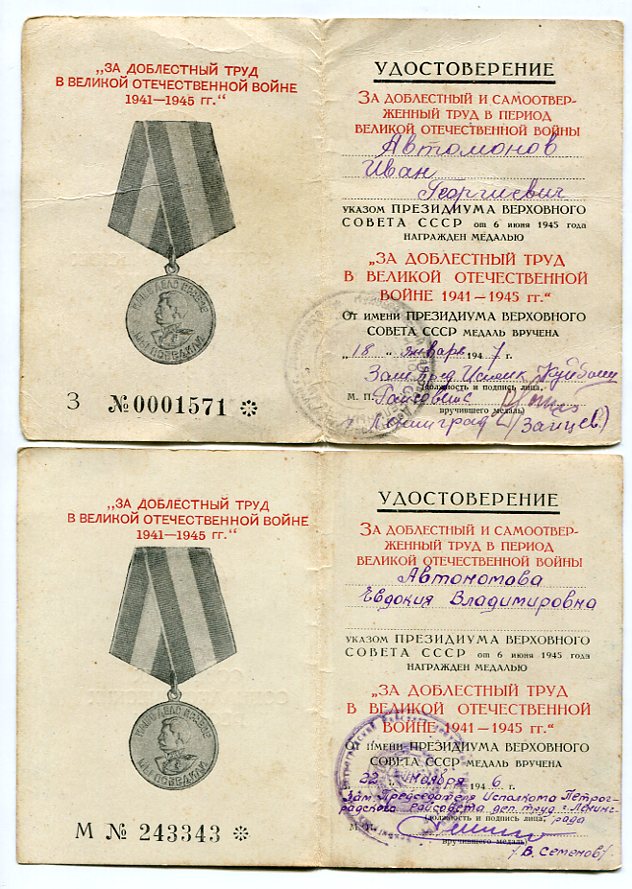 „ЗА ДОБЛЕСТНЫЙ ТРУД
В ВЕЛИКОЙ ОТЕЧЕСТВЕННОЙ ВОЙНЕ
1941—1945 гг.“
НАШЕ ДЕЛО ПРАВОЕ
МЫ ПОБЕДИЛИ
З №0001571
УДОСТОВЕРЕНИЕ
ЗА ДОБЛЕСТНЫЙ И САМООТВЕР-
ЖЕННЫЙ ТРУД В ПЕРИОД
ВЕЛИКОЙ ОТЕЧЕСТВЕННОЙ ВОЙНЫ
Автомонов
Иван
Георгиевич
УКАЗОМ ПРЕЗИДИУМА ВЕРХОВНОГО
СОВЕТА СССР от 6 июня 1945 года
НАГРАЖДЕН МЕДАЛЬЮ
„ЗА ДОБЛЕСТНЫЙ ТРУД
В ВЕЛИКОЙ ОТЕЧЕСТВЕННОЙ
ВОЙНЕ 1941—1945 гг.“
ОТ ИМЕНИ ПРЕЗИДИУМА ВЕРХОВНОГО
СОВЕТА СССР МЕДАЛЬ ВРУЧЕНА
„18“ января 1947 г.
Зам. пред. Исполк.
(должность и подпись лица,
М. П. Райсовета
вручившего медаль)
г. Ленинград (Зайцев)
„ЗА ДОБЛЕСТНЫЙ ТРУД
В ВЕЛИКОЙ ОТЕЧЕСТВЕННОЙ ВОЙНЕ
1941—1945 гг.“
НАШЕ ДЕЛО ПРАВОЕ
МЫ ПОБЕДИЛИ
М № 243343
УДОСТОВЕРЕНИЕ
ЗА ДОБЛЕСТНЫЙ И САМООТВЕР-
ЖЕННЫЙ ТРУД В ПЕРИОД
ВЕЛИКОЙ ОТЕЧЕСТВЕННОЙ ВОЙНЫ
Автономова
Евдокия Владимировна
УКАЗОМ ПРЕЗИДИУМА ВЕРХОВНОГО
СОВЕТА СССР от 6 июня 1945 года
НАГРАЖДЕН МЕДАЛЬЮ
„ЗА ДОБЛЕСТНЫЙ ТРУД
В ВЕЛИКОЙ ОТЕЧЕСТВЕННОЙ
ВОЙНЕ 1941—1945 гг.“
ОТ ИМЕНИ ПРЕЗИДИУМА ВЕРХОВНОГО
СОВЕТА СССР МЕДАЛЬ ВРУЧЕНА
22 ноября 1946 г.
Зам Председателя Исполкома Петрог-
радского Райсовета деп. труд. г. Ленинг-
(должность и подпись лица, рада
вручившего медаль)
/В. Семенов/